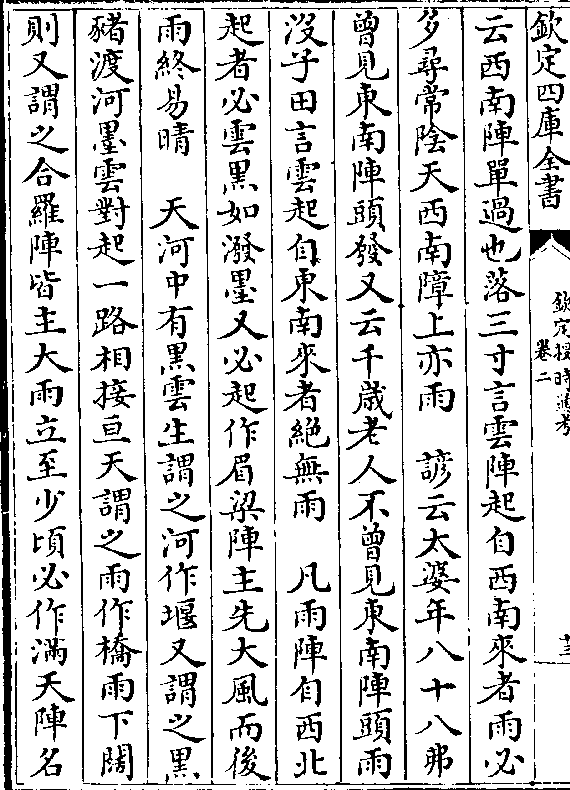 欽定四庫全書
欽定授時通考
卷二
十三
云西南陣單過也落三寸言雲陣起自西南來者雨必
多尋常陰天西南障上亦雨　諺云太婆年八十八弗
曾見東南陣頭發又云千歲老人不曾見東南陣頭雨
沒子田言雲起自東南來者絕無雨　凡雨陣自西北
起者必雲黑如潑墨又必起作眉梁陣主先大風而後
雨終易晴　天河中有黑雲生謂之河作堰又謂之黑
豬渡河墨雲對起一路相接亘天謂之雨作橋雨下闊
則又謂之合羅陣皆主大雨立至少頃必作滿天陣名